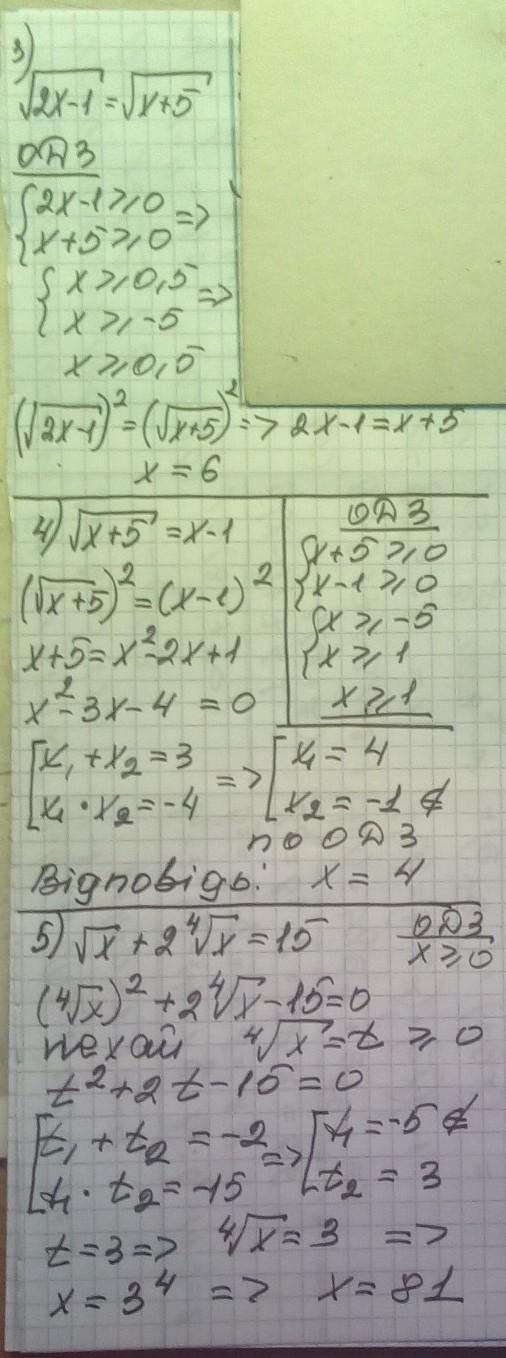 3)
√(2x-1) = √(x+5)
ОДЗ
{2x-1 ⩾ 0
{x+5 ⩾ 0 =>
{x ⩾ 0,5
{x ⩾ -5 =>
x ⩾ 0,5
(√(2x-1))² = (√(x+5))² => 2x-1 = x+5
x = 6
4) √(x+5) = x-1
(√(x+5))² = (x-1)²
x+5 = x²-2x+1
x²-3x-4 = 0
ОДЗ
{x+5 ⩾ 0
{x-1 ⩾ 0
{x ⩾ -5
{x ⩾ 1
x ⩾ 1
[x₁ + x₂ = 3
[x₁ · x₂ = -4 =>
[x₁ = 4
[x₂ = -1 ∉
по ОДЗ
Відповідь: x = 4
5) √x + 2⁴√x = 15
ОДЗ
x ⩾ 0
(⁴√x)² + 2⁴√x - 15 = 0
нехай ⁴√x = t ⩾ 0
t² + 2t - 15 = 0
[t₁ + t₂ = -2
[t₁ · t₂ = -15 =>
[t₁ = -5 ∉
[t₂ = 3
t = 3 => ⁴√x = 3 =>
x = 3⁴ => x = 81